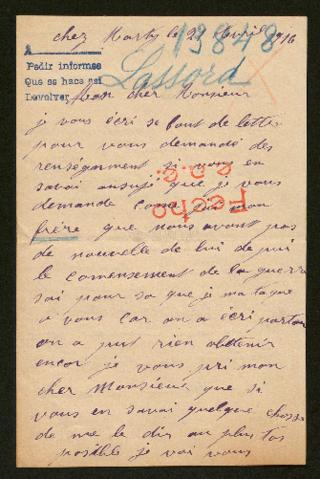 13848
chez Marty le 22 Avril 1916
Pedir informes
Que se hace así
Devolver
Lassord
Mon cher Monsieur
je vous écri se bout de lettre
pour vous demandé des
renségnment si vous en
savai ausujé que je vous
demande come quoi mon
Fecho
frère que nous avont pas
de nouvelle de lui depui
le comensement de la guerre
sai pour sa que je mataque
a vous car on a écri partou
on a put rien obtenir
encor je vous pri mon
cher Monsieur que si
vous en savai quelque chosse
de me le dir au plus tôs
posible je vai vous